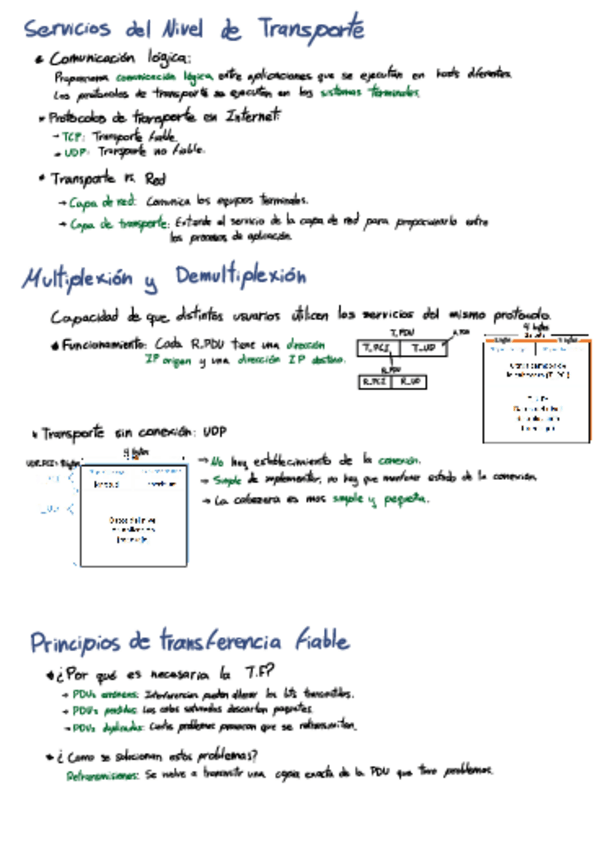 Servicios del Nivel de Transporte
• Comunicación lógica:
Proporciona comunicación lógica entre aplicaciones que se ejecutan en hosts diferentes.
Los protocolos de transporte se ejecutan en los sistemas terminales.
• Protocolos de transporte en Internet:
→ TCP: Transporte fiable.
→ UDP: Transporte no fiable.
• Transporte vs. Red
→ Capa de red: Comunica los equipos terminales.
→ Capa de transporte: Extiende el servicio de la capa de red para proporcionarlo entre
los procesos de aplicación.
Multiplexión y Demultiplexión
Capacidad de que distintos usuarios utilicen los servicios del mismo protocolo.
• Funcionamiento: Cada R_PDU tiene una dirección
IP origen y una dirección IP destino.
T_PDU
T_PCI T_UD
R_PDU
R_PCI R_UD
4 bytes
• Transporte sin conexión: UDP
→ No hay establecimiento de la conexión.
→ Simple de implementar, no hay que mantener estado de la conexión.
→ La cabecera es mas simple y pequeña.
Principios de transferencia fiable
• ¿Por qué es necesaria la T.F?
→ PDUs erróneas: Interferencias pueden alterar los bits transmitidos.
→ PDUs perdidas: Las colas saturadas descartan paquetes.
→ PDUs duplicadas: Ciertos problemas provocan que se retransmitan.
• ¿Como se solucionan estos problemas?
Retransmisiones: Se vuelve a transmitir una copia exacta de la PDU que tuvo problemas.